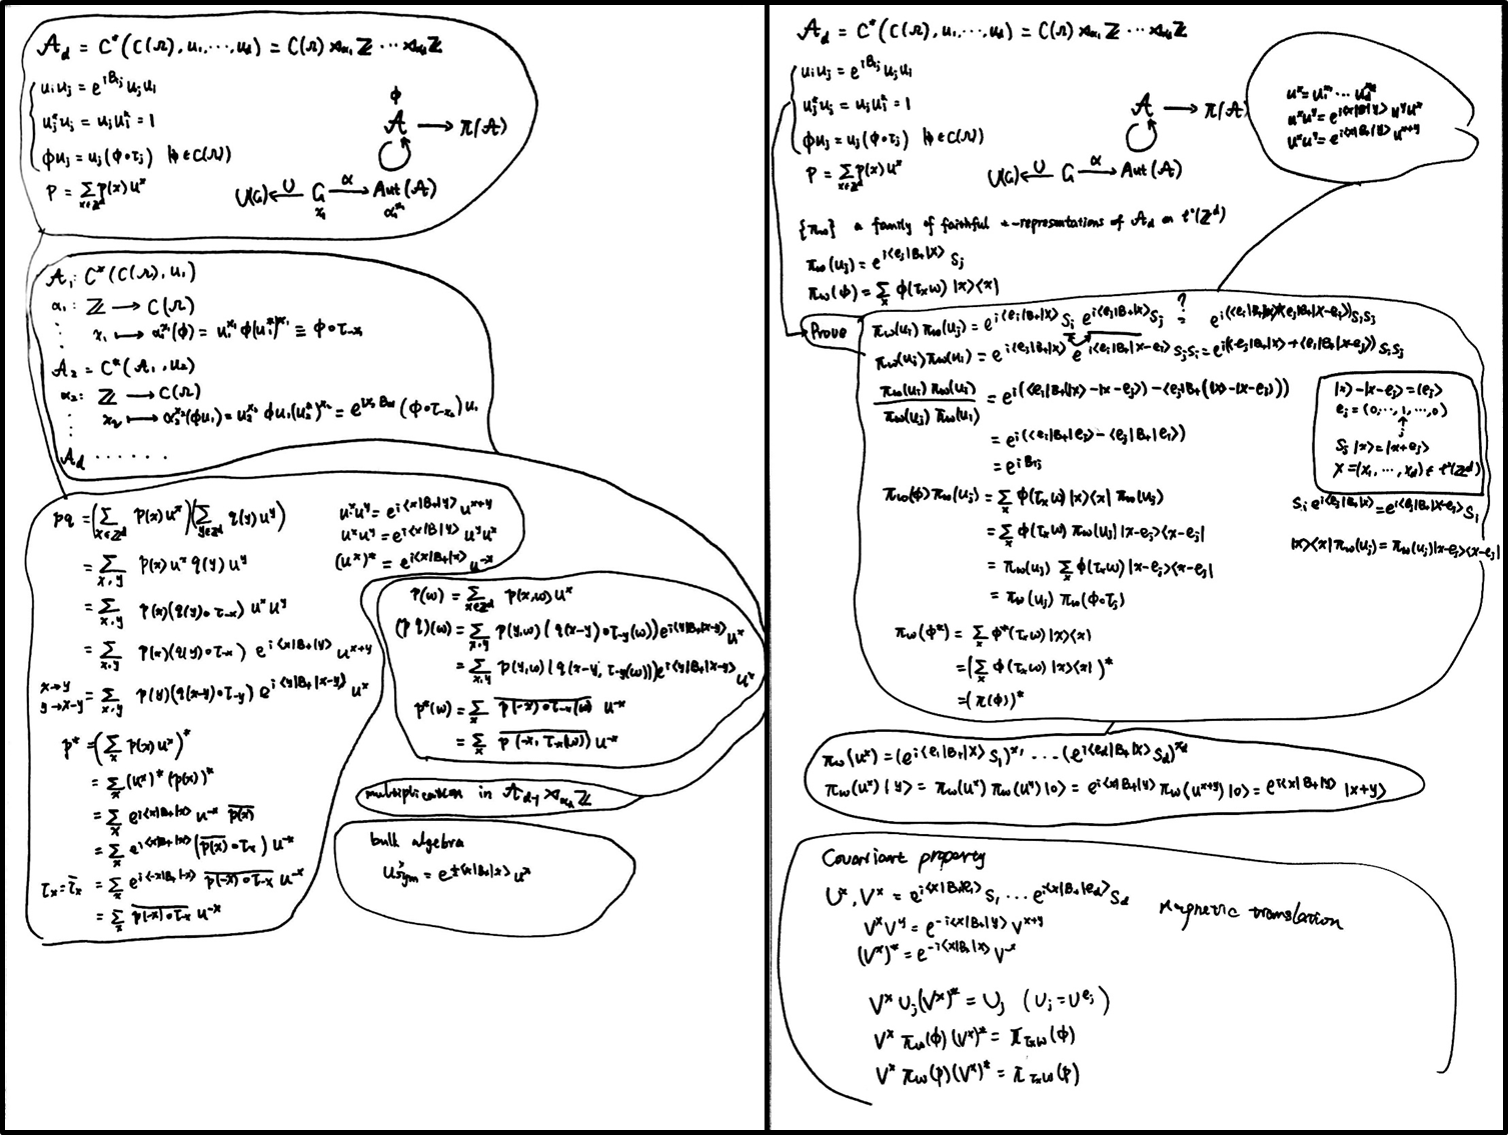 𝒜_d = C*(C(Ω), u₁, ⋯, u_d) = C(Ω) ⋊_{α₁} ℤ ⋯ ⋊_{α_d} ℤ
u_i u_j = e^{iB_{ij}} u_j u_i
u_j* u_j = u_j u_j* = 1
φu_j = u_j(φ∘τ_j) ∀φ∈C(Ω)
P = Σ_{x∈ℤ^d} p(x) u^x
φ
𝒜 → π(𝒜)
U(G) ←U— G —α→ Aut(𝒜)
x₁ α₁^{x₁}
𝒜₁ : C*(C(Ω), u₁)
α₁ : ℤ → C(Ω)
x₁ ↦ α₁^{x₁}(φ) = u₁^{x₁} φ(u₁*)^{x₁} ≡ φ∘τ_{-x₁}
𝒜₂ = C*(𝒜₁, u₂)
α₂ : ℤ → C(Ω)
x₂ ↦ α₂^{x₂}(φu₁) = u₂^{x₂} φu₁(u₂*)^{x₂} = e^{ix₂B₂₁}(φ∘τ_{-x₂})u₁
𝒜_d ⋯⋯
pq = (Σ_{x∈ℤ^d} p(x)u^x)(Σ_{y∈ℤ^d} q(y)u^y)
= Σ_{x,y} p(x)u^x q(y)u^y
= Σ_{x,y} p(x)(q(y)∘τ_{-x}) u^x u^y
= Σ_{x,y} p(x)(q(y)∘τ_{-x}) e^{i⟨x|B₊|y⟩} u^{x+y}
x→y
y→x-y = Σ_{x,y} p(y)(q(x-y)∘τ_{-y}) e^{i⟨y|B₊|x-y⟩} u^x
p* = (Σ_x p(x)u^x)*
= Σ_x (u^x)*(p(x))*
= Σ_x e^{i⟨x|B₊|x⟩} u^{-x} \overline{p(x)}
= Σ_x e^{i⟨x|B₊|x⟩} (\overline{p(x)}∘τ_x) u^{-x}
= Σ_x e^{i⟨-x|B₊|-x⟩} \overline{p(-x)∘τ_{-x}} u^{-x}
= Σ_x \overline{p(-x)∘τ_{-x}} u^{-x}
u^x u^y = e^{i⟨x|B₊|y⟩} u^{x+y}
u^x u^y = e^{i⟨x|B|y⟩} u^y u^x
(u^x)* = e^{i⟨x|B₊|x⟩} u^{-x}
p(ω) = Σ_{x∈ℤ^d} p(x,ω)u^x
(pq)(ω) = Σ_{x,y} p(y,ω)(q(x-y)∘τ_{-y}(ω))e^{i⟨y|B₊|x-y⟩} u^x
= Σ_{x,y} p(y,ω)(q(x-y, τ_{-y}(ω)))e^{i⟨y|B₊|x-y⟩} u^x
p*(ω) = Σ_x \overline{p(-x)∘τ_{-x}(ω)} u^{-x}
= Σ_x \overline{p(-x, τ_{-x}(ω))} u^{-x}
multiplication in 𝒜_{d-1} ⋊_{α_d} ℤ
bulk algebra
u^x_{sym} = e^{±⟨x|B₊|x⟩} u^x
𝒜_d = C*(C(Ω), u₁, ⋯, u_d) = C(Ω) ⋊_{α₁} ℤ ⋯ ⋊_{α_d} ℤ
u_i u_j = e^{iB_{ij}} u_j u_i
u_j* u_j = u_j u_j* = 1
φu_j = u_j(φ∘τ_j) ∀φ∈C(Ω)
P = Σ_{x∈ℤ^d} p(x) u^x
𝒜 → π(𝒜)
U(G) ←U— G —α→ Aut(𝒜)
u^x = u₁^{x₁} ⋯ u_d^{x_d}
u^x u^y = e^{i⟨x|B|y⟩} u^y u^x
u^x u^y = e^{i⟨x|B₊|y⟩} u^{x+y}
{π_ω} a family of faithful *-representations of 𝒜_d on ℓ²(ℤ^d)
π_ω(u_j) = e^{i⟨e_j|B₊|x⟩} S_j
π_ω(φ) = Σ_x φ(τ_x ω) |x⟩⟨x|
Prove
π_ω(u_i) π_ω(u_j) = e^{i⟨e_i|B₊|x⟩} S_i e^{i⟨e_j|B₊|x⟩} S_j ?= e^{i(⟨e_i|B₊|x⟩+⟨e_j|B₊|x-e_i⟩)} S_i S_j
π_ω(u_j) π_ω(u_i) = e^{i⟨e_j|B₊|x⟩} e^{i⟨e_i|B₊|x-e_j⟩} S_j S_i = e^{i(⟨e_j|B₊|x⟩+⟨e_i|B₊|x-e_j⟩)} S_i S_j
π_ω(u_i) π_ω(u_j) / π_ω(u_j) π_ω(u_i) = e^{i(⟨e_i|B₊(|x⟩-|x-e_j⟩)-⟨e_j|B₊(|x⟩-|x-e_i⟩))}
= e^{i(⟨e_i|B₊|e_j⟩-⟨e_j|B₊|e_i⟩)}
= e^{iB_{ij}}
|x⟩-|x-e_j⟩=|e_j⟩
e_j = (0,⋯,1,⋯,0)
j
S_j|x⟩=|x+e_j⟩
x=(x₁,⋯,x_d)∈ℓ²(ℤ^d)
S_i e^{i⟨e_j|B₊|x⟩} = e^{i⟨e_j|B₊|x-e_i⟩} S_i
|x⟩⟨x|π_ω(u_j) = π_ω(u_j)|x-e_j⟩⟨x-e_j|
π_ω(φ)π_ω(u_j) = Σ_x φ(τ_x ω)|x⟩⟨x| π_ω(u_j)
= Σ_x φ(τ_x ω) π_ω(u_j)|x-e_j⟩⟨x-e_j|
= π_ω(u_j) Σ_x φ(τ_x ω)|x-e_j⟩⟨x-e_j|
= π_ω(u_j) π_ω(φ∘τ_j)
π_ω(φ*) = Σ_x φ*(τ_x ω)|x⟩⟨x|
= (Σ_x φ(τ_x ω)|x⟩⟨x|)*
= (π(φ))*
π_ω(u^x) = (e^{i⟨e₁|B₊|x⟩} S₁)^{x₁} ⋯ (e^{i⟨e_d|B₊|x⟩} S_d)^{x_d}
π_ω(u^x)|y⟩ = π_ω(u^x) π_ω(u^y)|0⟩ = e^{i⟨x|B₊|y⟩} π_ω(u^{x+y})|0⟩ = e^{i⟨x|B₊|y⟩} |x+y⟩
Covariant property
U^x, V^x = e^{i⟨x|B₊|e₁⟩} S₁ ⋯ e^{i⟨x|B₊|e_d⟩} S_d
Magnetic translation
V^x V^y = e^{-i⟨x|B₊|y⟩} V^{x+y}
(V^x)* = e^{-i⟨x|B₊|x⟩} V^{-x}
V^x U_j (V^x)* = U_j (U_j = U^{e_j})
V^x π_ω(φ)(V^x)* = π_{τ_x ω}(φ)
V^x π_ω(p)(V^x)* = π_{τ_x ω}(p)